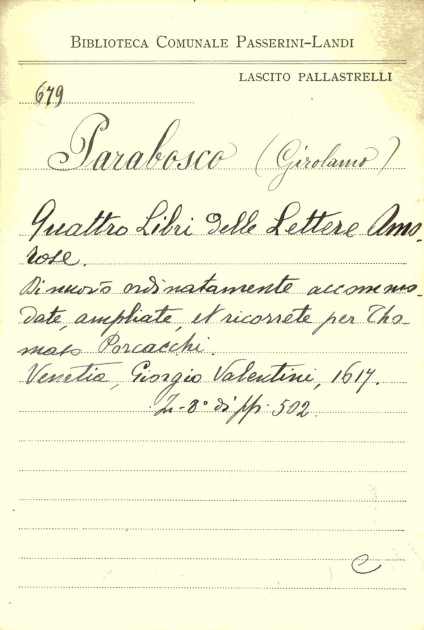 BIBLIOTECA COMUNALE PASSERINI-LANDI
LASCITO PALLASTRELLI
679
Parabosco (Girolamo)
Quattro Libri delle Lettere Amo-
rose.
Di nuovo ordinatamente accommo-
date, ampliate, et ricorrete per Tho-
maso Porcacchi.
Venetia, Giorgio Valentini, 1617.
In-8° di pp. 502.
C